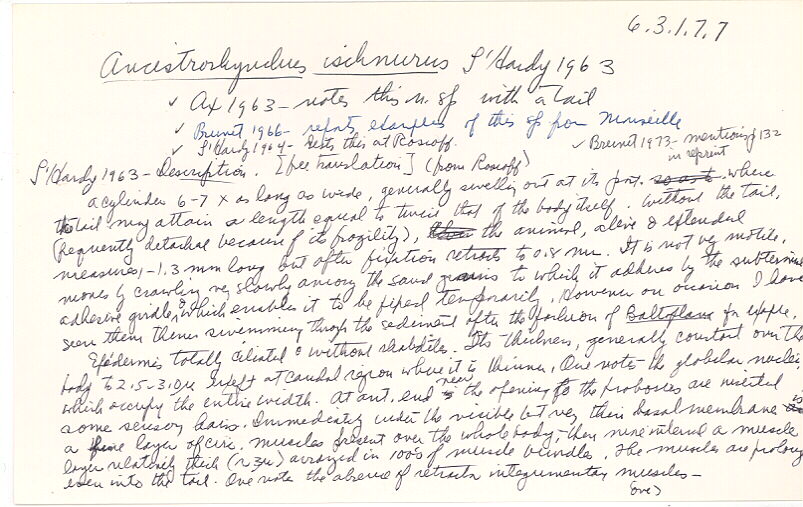 6.3.1.7.7
Ancestrorhynchus ischnurus L'Hardy 1963
✓ Ax 1963 - notes this n. sp with a tail
✓ Brunet 1966 - reports examples of this sp from Marseille
✓ L'Hardy 1964 - lists this at Roscoff.
✓ Brunet 1973 - mentions p 132
in reprint
L'Hardy 1963 - Description. [free translation] (from Roscoff)
a cylinder 6-7 x as long as wide, generally swelling out at its post. so as to where
the tail may attain a length equal to twice that of the body itself. Without the tail,
(frequently detached because of its fragility), the animal, alive & extended
measures, - 1.3 mm long but after fixation retracts to 0.8 mm. It is not very motile,
moves by crawling very slowly among the sand grains to which it adheres by the subterminal
adhesive girdle, which enables it to be fixed temporarily. However on occasion I have
seen them swimming through the sediment after the fashion of Baltoplana for example.
Epidermis totally ciliated & without rhabdites. Its thickness, generally constant over the
body to 2.5-3.0µ except at caudal region where it is thinner. One notes the globular nuclei,
which occupy the entire width. At ant. end near the opening to the proboscis are inserted
some sensory hairs. Immediately under the visible but very thin basal membrane is
a fine layer of circ. muscles present over the whole body, then more internal a muscle
layer relatively thick (~3µ) arranged in 100's of muscle bundles. The muscles are prolonged
even into the tail. One notes the absence of retractor integumentary muscles -
(over)